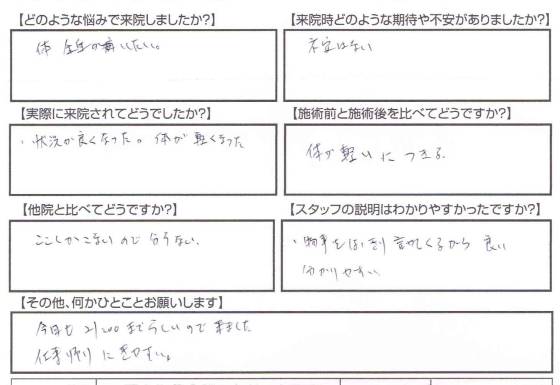 【どのような悩みで来院しましたか?】
体 全身が痛いたい。
【来院時どのような期待や不安がありましたか?】
不安はない
【実際に来院されてどうでしたか?】
・状況が良くなった。体が軽くなった
【施術前と施術後を比べてどうですか?】
体が軽いにつきる
【他院と比べてどうですか?】
ここしかこないので分らない。
【スタッフの説明はわかりやすかったですか?】
・物事をはっきり言ってくるから 良い
分かりやすい
【その他、何かひとことお願いします】
今日も 21:00 までらしいので 来ました
仕事帰りに きやすい。